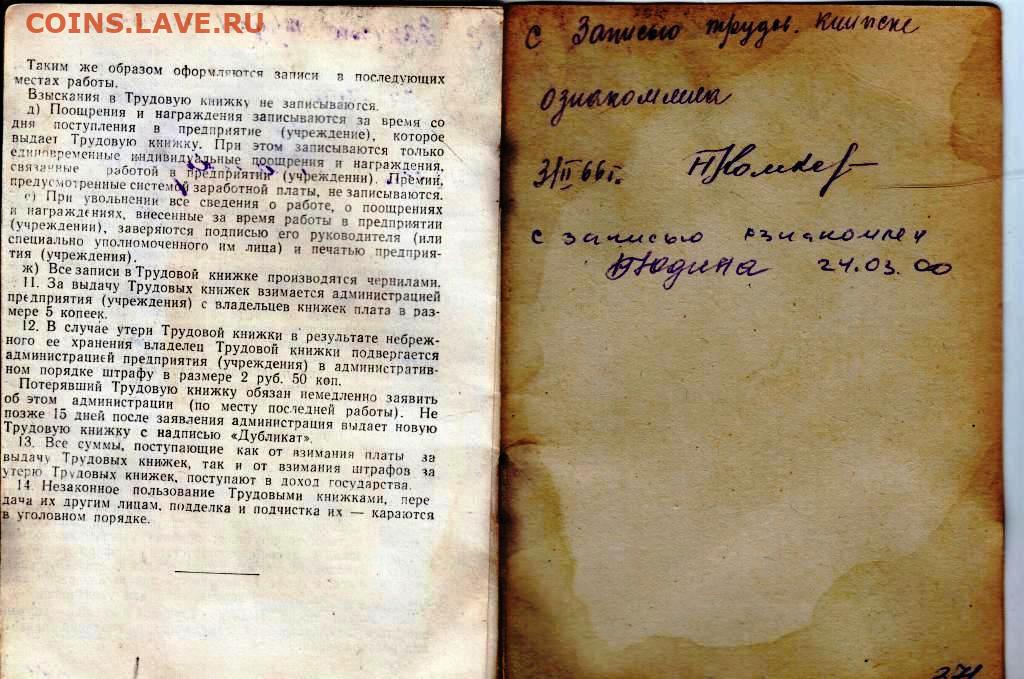 COINS.LAVE.RU
Таким же образом оформляются записи в последующих
местах работы.
Взыскания в Трудовую книжку не записываются.
д) Поощрения и награждения записываются за время со
дня поступления в предприятие (учреждение), которое
выдает Трудовую книжку. При этом записываются только
единовременные индивидуальные поощрения и награждения,
связанные работой в предприятии (учреждении). Премии,
предусмотренные системой заработной платы, не записываются.
е) При увольнении все сведения о работе, о поощрениях
и награждениях, внесенные за время работы в предприятии
(учреждении), заверяются подписью его руководителя (или
специально уполномоченного им лица) и печатью предприя-
тия (учреждения).
ж) Все записи в Трудовой книжке производятся чернилами.
11. За выдачу Трудовых книжек взимается администрацией
предприятия (учреждения) с владельцев книжек плата в раз-
мере 5 копеек.
12. В случае утери Трудовой книжки в результате небреж-
ного ее хранения владелец Трудовой книжки подвергается
администрацией предприятия (учреждения) в административ-
ном порядке штрафу в размере 2 руб. 50 коп.
Потерявший Трудовую книжку обязан немедленно заявить
об этом администрации (по месту последней работы). Не
позже 15 дней после заявления администрация выдает новую
Трудовую книжку с надписью «Дубликат».
13. Все суммы, поступающие как от взимания платы за
выдачу Трудовых книжек, так и от взимания штрафов за
утерю Трудовых книжек, поступают в доход государства.
14. Незаконное пользование Трудовыми книжками, пере
дача их другим лицам, подделка и подчистка их — караются
в уголовном порядке.
с Записью трудов. книжке
ознакомлена
3/II 66 г.
с записью ознакомлен
Юдина 24.03.00